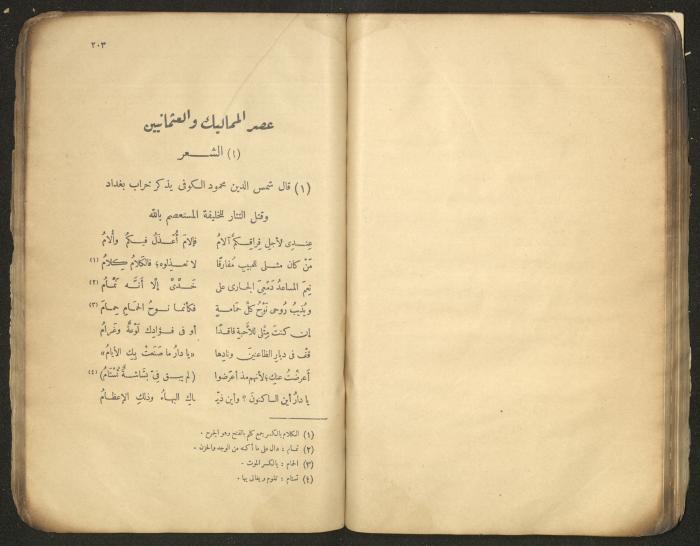 ٢٠٣
عصر المماليك والعثمانيين
(١) الشعر
(١) قال شمس الدين محمود الكوفى يذكر خراب بغداد
وقتل التتار للخليفة المستعصم بالله
عِندى لأجلِ فِراقِكم آلامُ فإلامَ أُعذَلُ فيكمُ وأُلامُ
مَنْ كان مثلى للحبيبِ مُفارقًا لا تعذِلوه؛ فالكلامُ كِلامُ (١)
نِعمَ المساعدُ دَمْعِىَ الجارى على خَدّىْ إلا أنّه نَمّامُ (٢)
ويُذيبُ رُوحى نَوْحُ كلّ حَمامةٍ فكأنما نوحُ الحمامِ حِمامُ (٣)
إن كنتَ مِثْلى للأحبةِ فاقدًا أو فى فؤادِك لَوْعةٌ وغَرامُ
قِفْ فى ديارِ الظاعنينَ ونادِها «يا دارُ ما صَنَعتْ بِكِ الأيامُ»
أعرضْتُ عنكِ؛ لأنهم مذ أعرَضوا (لم يبق فىّ بَشاشةٌ تُسْتَامُ) (٤)
يا دارُ أين الساكنونَ؟ وأين ذيّـ ـاكِ البهاءُ وذلك الإعظامُ
(١) الكلام بالكسر جمع كلم بالفتح وهو الجرح .
(٢) نمام : دال على ما أكنه من الوجد والحزن .
(٣) الحمام : بالكسر الموت .
(٤) تستام : تقوم ويغالى بها .